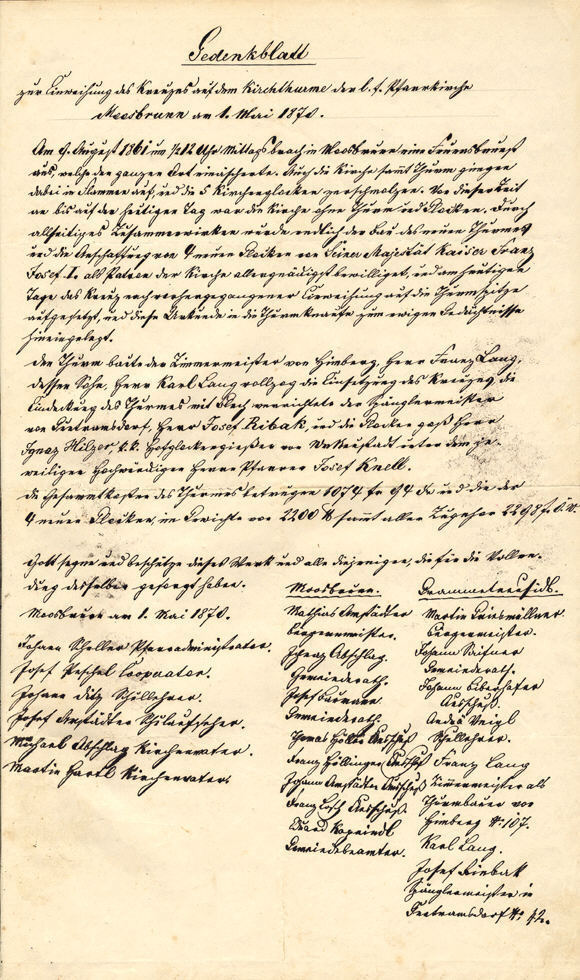 Gedenkblatt
zur Einweihung des Kreuzes auf dem Kirchthurme der l. f. Pfarrkirche
Moosbrunn am 1. Mai 1870.
Am 9. August 1861 um ½12 Uhr Mittags brach in Moosbrunn eine Feuersbrunst
aus, welche den ganzen Ort einäscherte. Auch die Kirche sammt Thurm gingen
dabei in Flammen auf, und die 5 Kirchenglocken zerschmolzen. Von dieser Zeit
an bis auf den heutigen Tag war die Kirche ohne Thurm und Glocken. Durch
allseitiges Zusammenwirken wurde endlich der Bau des neuen Thurmes
und die Anschaffung von 4 neuen Glocken von Seiner Majestät Kaiser Franz
Josef I. als Patron der Kirche allergnädigst bewilliget, und am heutigen
Tage das Kreuz nach vorhergegangener Einweihung auf die Thurmspitze
aufgesetzt, und diese Urkunde in die Thurmknaufe zum ewigen Gedächtnisse
hineingelegt.
Den Thurm baute der Zimmermeister von Himberg, Herr Franz Lang,
dessen Sohn, Herr Karl Lang vollzog die Einsetzung des Kreuzes, die
Eindeckung des Thurmes mit Blech verrichtete der Spänglermeister
von Trautmansdorf, Herr Josef Ribak, und die Glocken goß Herr
Ignaz Hilzer, k. k. Hofglockengießer von Wr Neustadt unter dem je-
weiligen Hochwürdigen Herrn Pfarrer Josef Knell.
Die Gesammtkosten des Thurmes betrugen 1074 fr 94 und die der
4 neuen Glocken, im Gewichte von 2200 ℔ sammt allem Zugehör 2298 f. Ö. W.
Gott segne und beschütze dieses Werk und alle diejenigen, die für die Vollen-
dung desselben gesorgt haben.
Moosbrunn am 1. Mai 1870.
Johann Scheller Pfarradministrator.
Josef Peschel Cooperator.
Johann Ditz Schullehrer.
Josef Amstädter Schulaufseher.
Michael Abschlag Kirchenvater.
Martin Hartl Kirchenvater.
Moosbrunn.
Mathias Amstädter
Bürgermeister.
Ignaz Abschlag
Gemeinderath.
Josef
Gemeinderath.
Thomas Höller Ausschuß
Franz Höllinger Ausschuß
Johann Amstädter Ausschuß
Franz Ausschuß.
Eduard
Gemeindebeamter.
Martin
Bürgermeister.
Johann
Gemeinderath.
Johann Biberhofer
Ausschuß.
Andrä Weigl
Schullehrer.
Franz Lang
Zimmermeister als
Thurmbauer von
Himberg № 107.
Karl Lang.
Josef Riebak
Spänglermeister in
Trautmansdorf № 42.